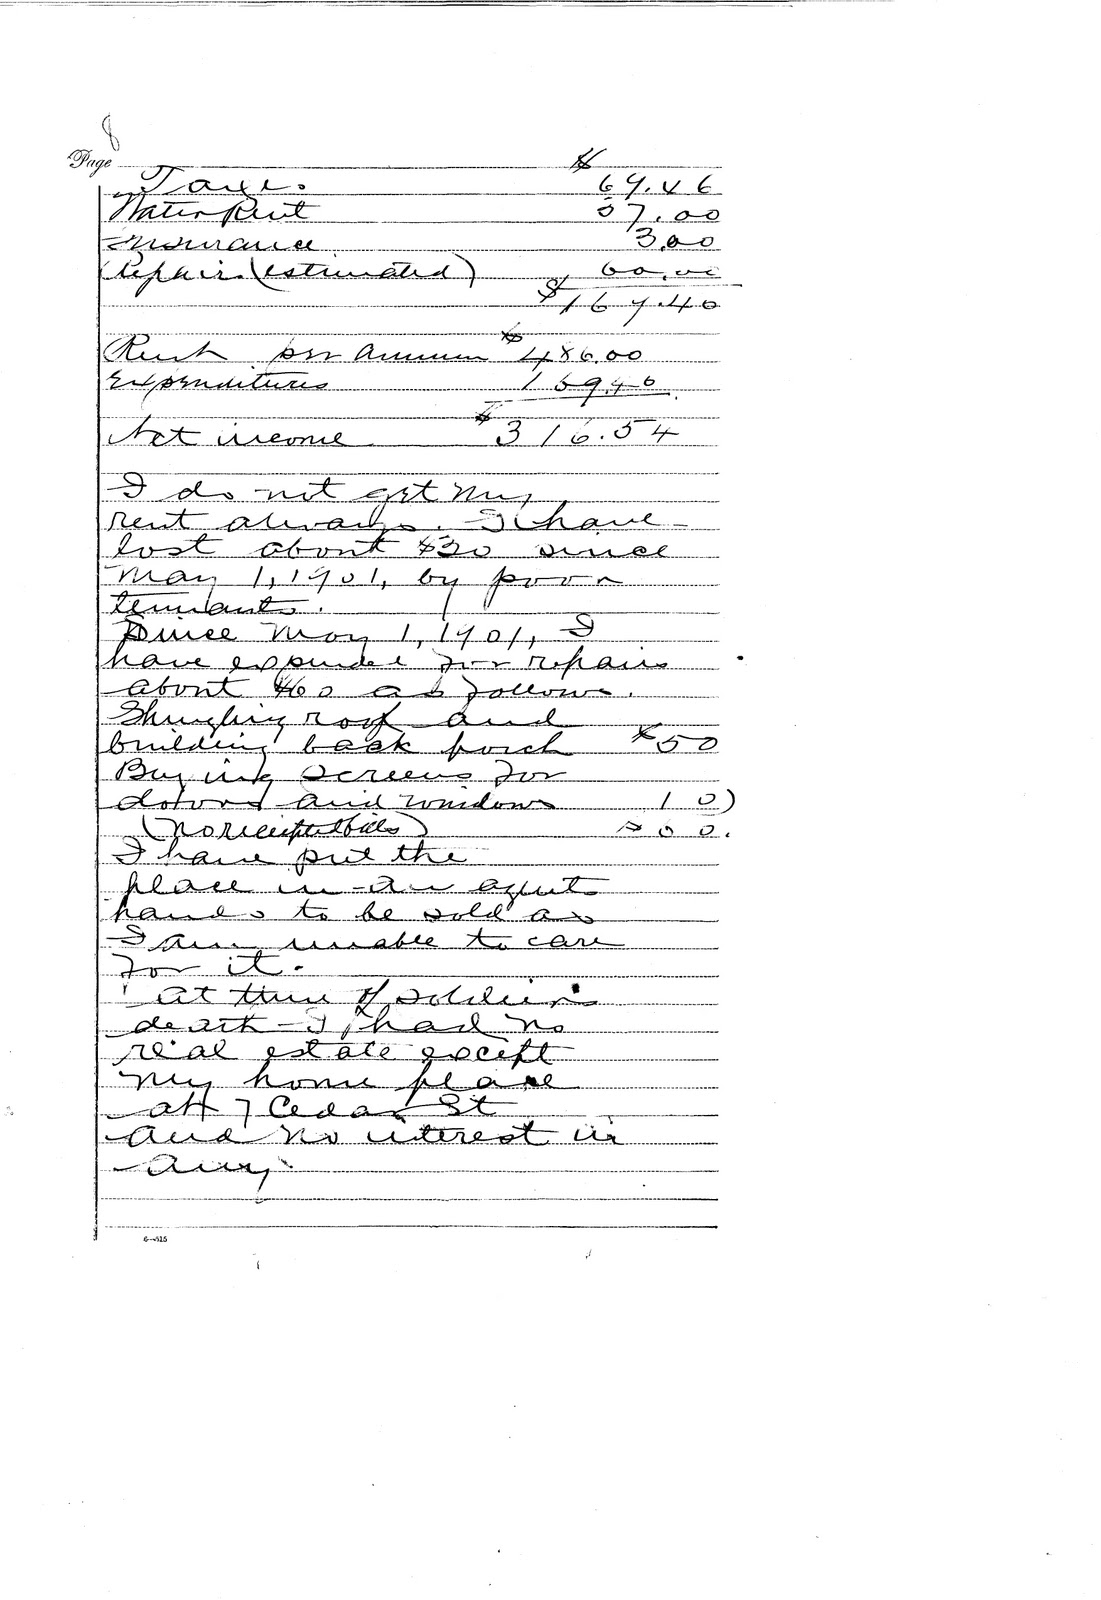 Page 8
$
Taxes. 69.46
Water Rent 37.00
Insurance 3.00
Repairs (estimated) 60.00
$169.46
$
Rent per annum 486.00
Expenditures 169.46
$
Net income 316.54
I do not get my
rent always. I have
lost about $20 since
May 1, 1901, by poor
tennants.
Since May 1, 1901, I
have expended for repairs
about $60 as follows.
Shingling roof and
building back porch $50
Buying screens for
doors and windows 10)
(no receipted bills) $60.
I have put the
place in an agents
hands to be sold as
I am unable to care
for it.
At time of soldier's
death I had no
real estate except
my home place
at 7 Cedar St
and no interest in
any.
6-515